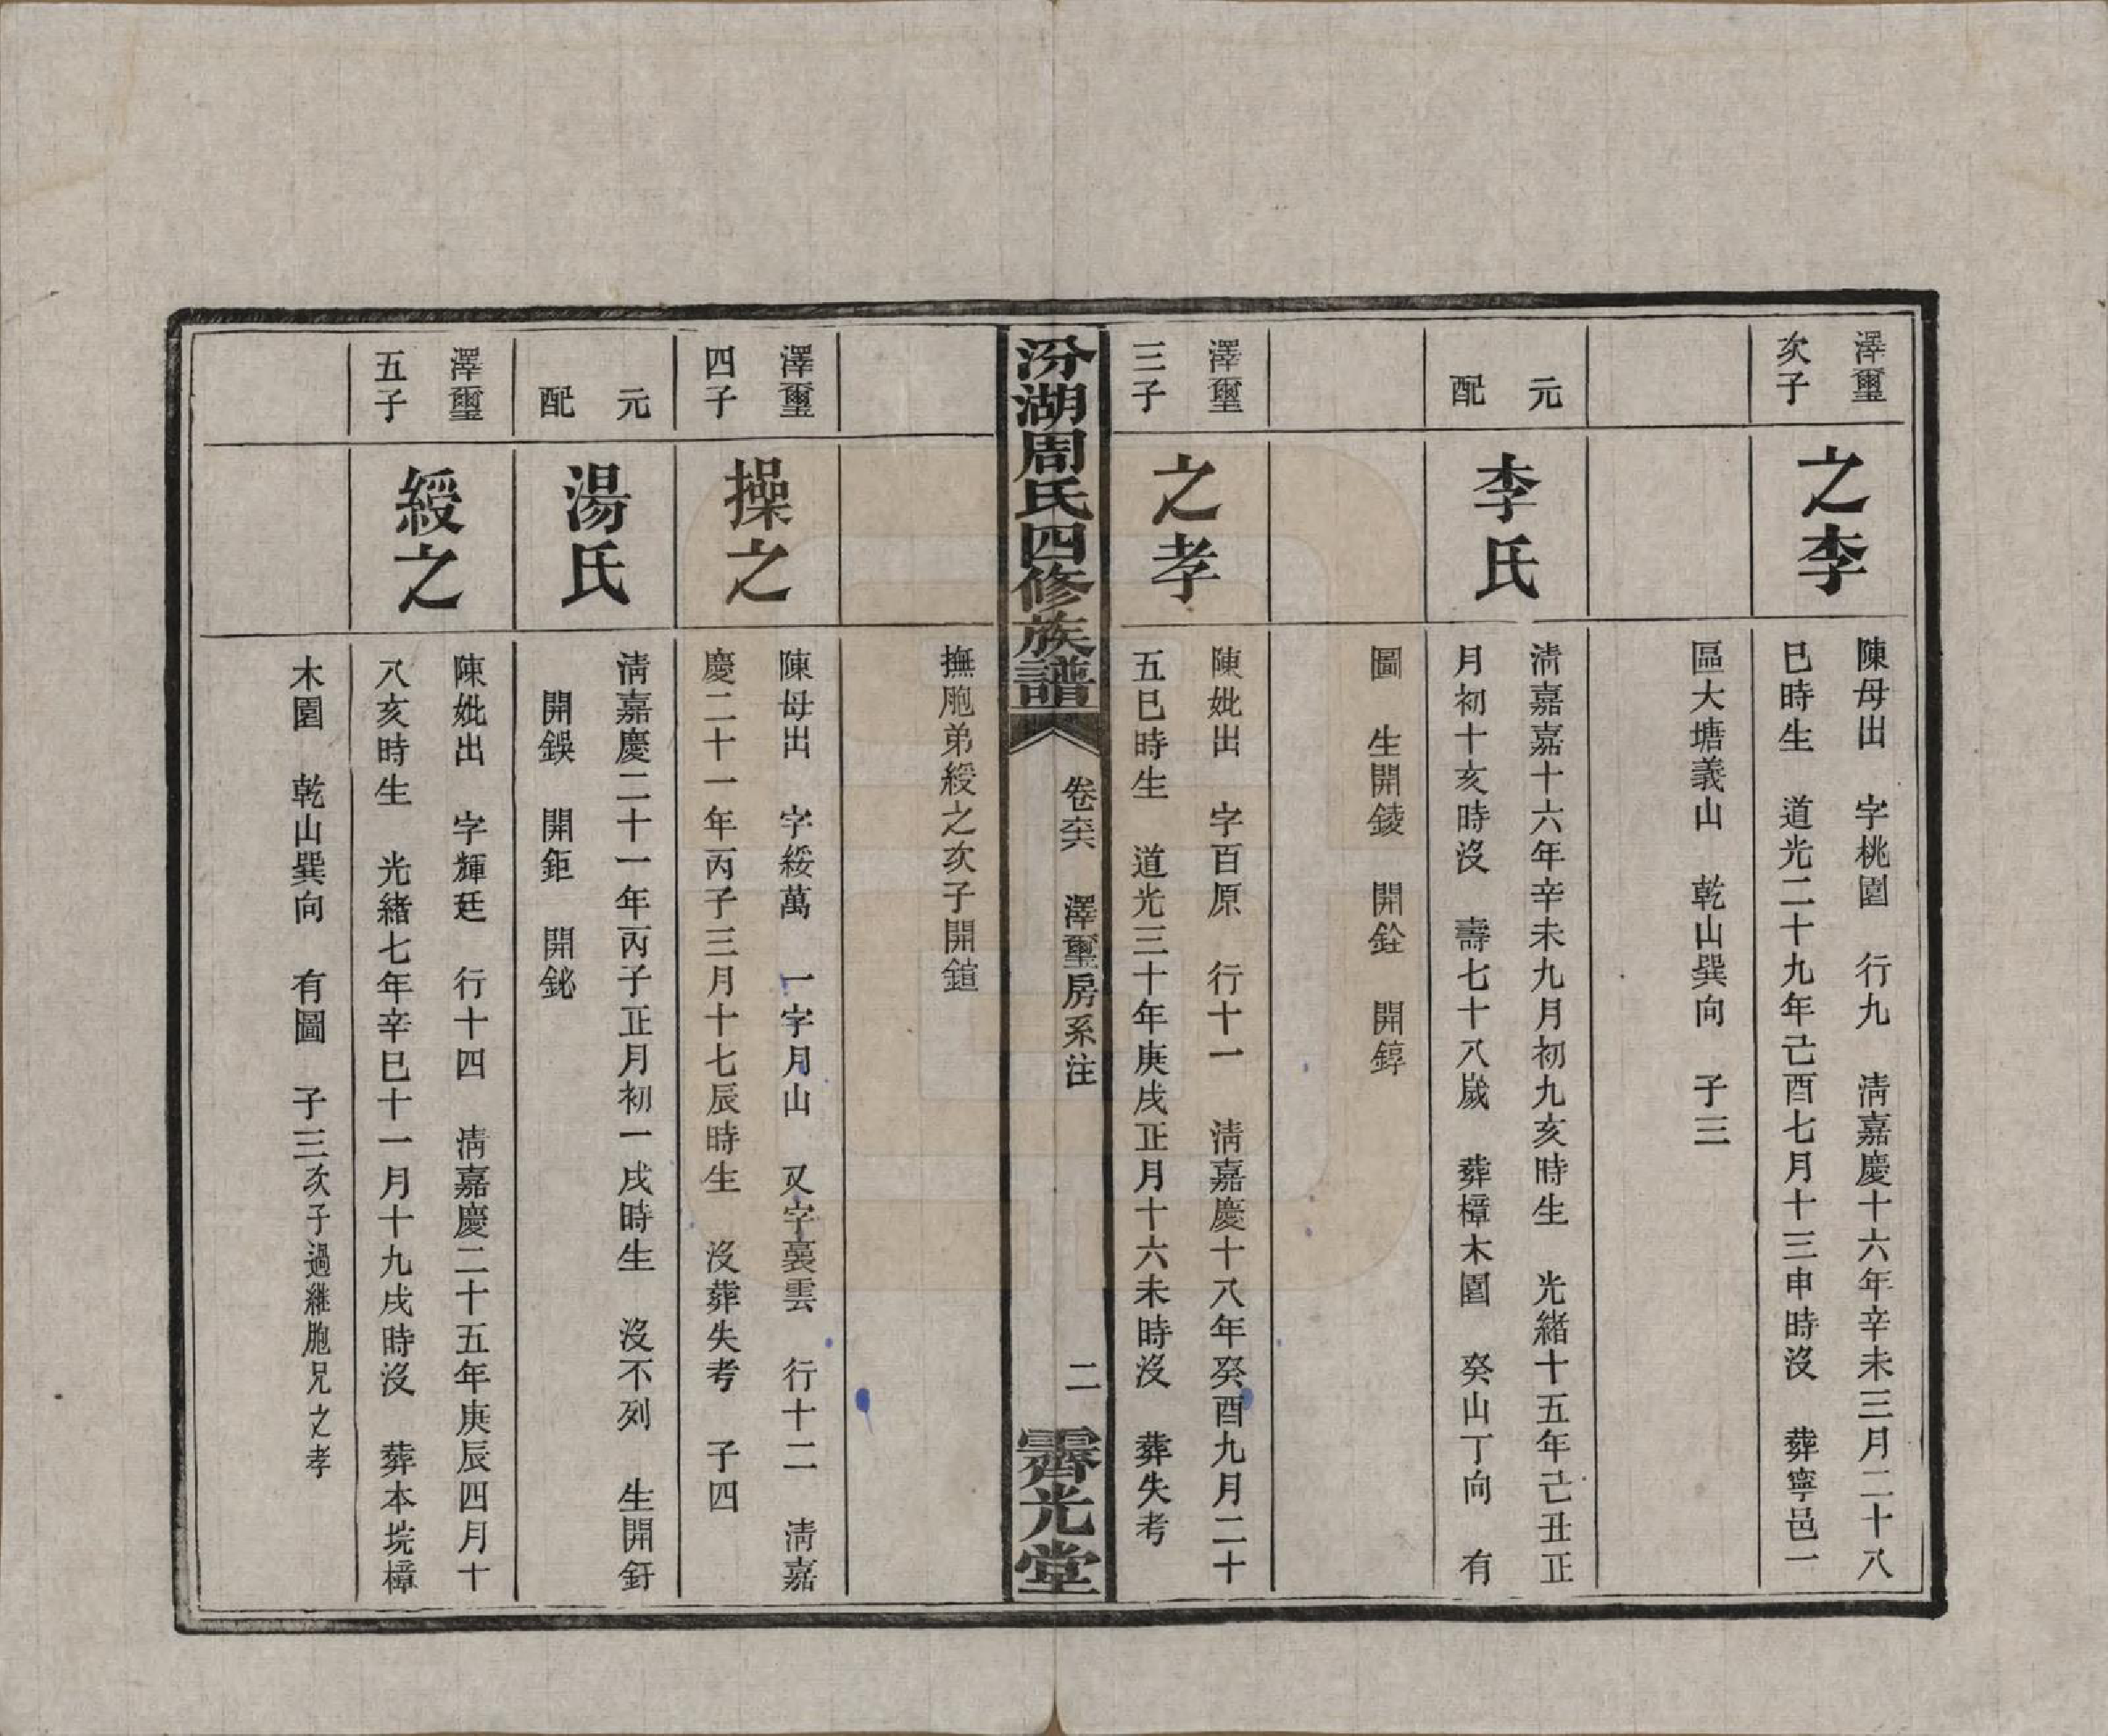 澤璽
次子
之李
陳母出　字桃園　行九　淸嘉慶十六年辛未三月二十八
巳時生　道光二十九年己酉七月十三申時沒　葬寧邑一
區大塘義山　乾山巽向　子三
元
配
李氏
淸嘉嘉十六年辛未九月初九亥時生　光緒十五年己丑正
月初十亥時沒　壽七十八嵗　葬樟木園　癸山丁向　有
圖　生開錂　開銓　開錞
澤璽
三子
之孝
陳妣出　字百原　行十一　淸嘉慶十八年癸酉九月二十
五巳時生　道光三十年庚戌正月十六未時沒　葬失考
撫胞弟綬之次子開鍹
汾湖周氏四修族譜
卷六六　澤璽房系注
二
霽光堂
澤璽
四子
操之
陳母出　字綏萬　一字月山　又字裛雲　行十二　淸嘉
慶二十一年丙子三月十七辰時生　沒葬失考　子四
元
配
湯氏
淸嘉慶二十一年丙子正月初一戌時生　沒不列　生開釪
開鋘　開鉅　開鉍
澤璽
五子
綬之
陳妣出　字輝廷　行十四　淸嘉慶二十五年庚辰四月十
八亥時生　光緒七年辛巳十一月十九戌時沒　葬本垸樟
木園　乾山巽向　有圖　子三次子過繼胞兄之孝